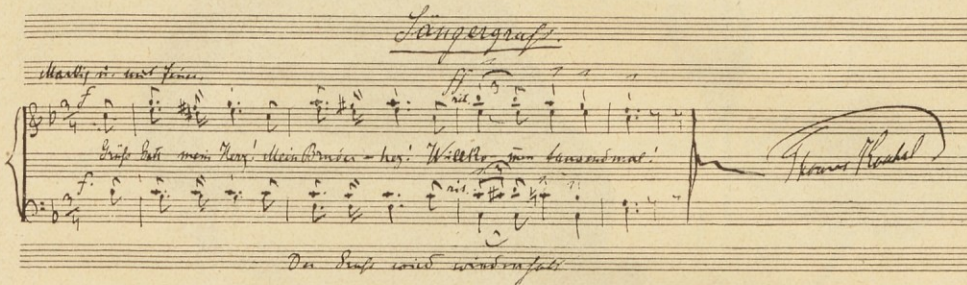 Sängergruß.
Markig u. mit Feuer.
f ff rit. 3
Grüß Gott mein Herz! Mein Bruderherz! Willkommen tausendmal!
Thomas Koschat
f. rit. 3
Der Gruß wird wiederholt